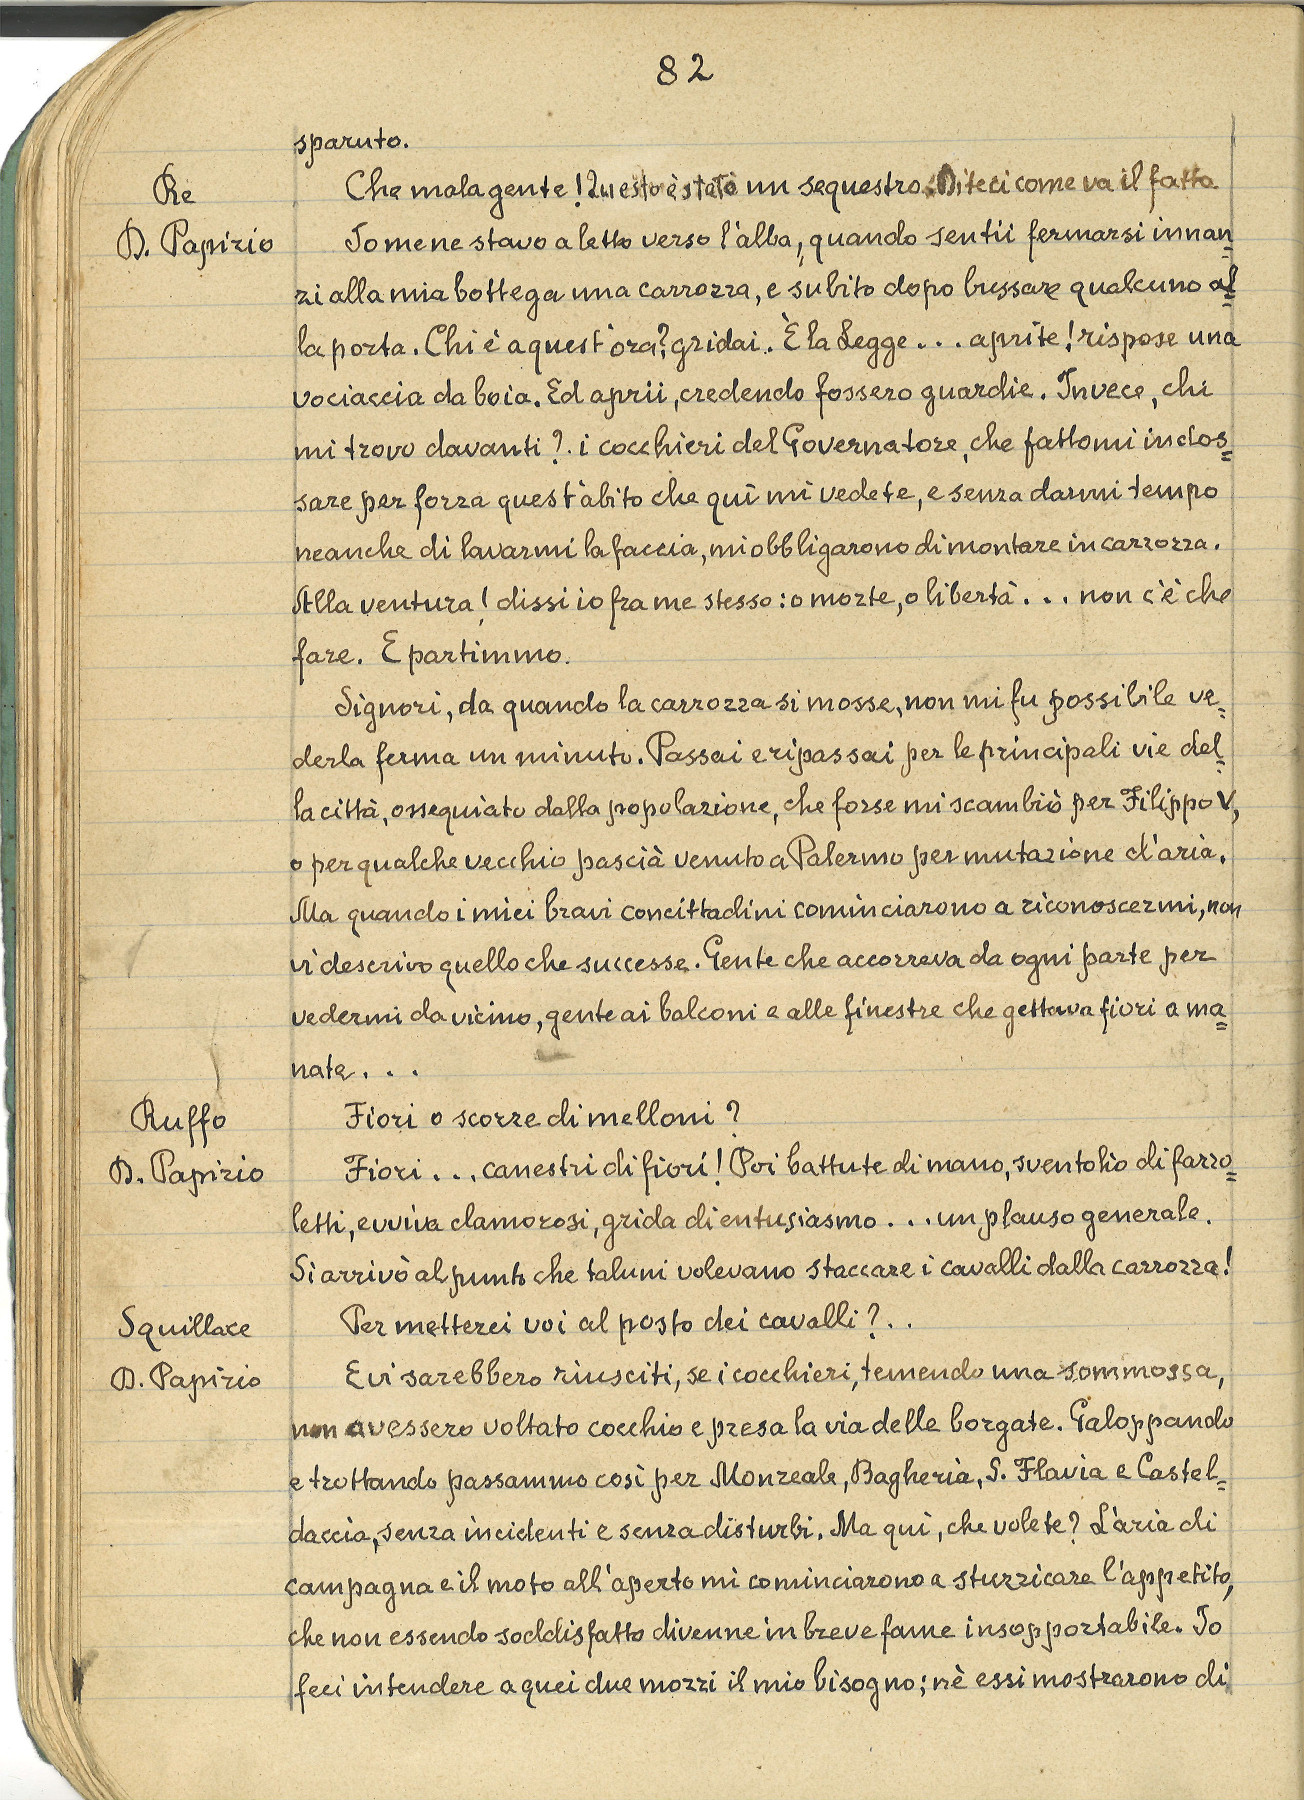 82
sparuto.
Re Che mala gente! Questo è stato un sequestro. Diteci come va il fatto
D. Papirio Io me ne stavo a letto verso l'alba, quando sentii fermarsi innan=
zi alla mia bottega una carrozza, e subito dopo bussare qualcuno al=
la porta. Chi è a quest'ora? gridai. È la Legge... aprite! rispose una
vociaccia da boia. Ed aprii, credendo fossero guardie. Invece, chi
mi trovo davanti?. i cocchieri del Governatore, che fattomi indos=
sare per forza quest'abito che quì mi vedete, e senza darmi tempo
neanche di lavarmi la faccia, mi obbligarono di montare in carrozza.
Alla ventura! dissi io fra me stesso: o morte, o libertà... non c'è che
fare. E partimmo.
Signori, da quando la carrozza si mosse, non mi fu possibile ve=
derla ferma un minuto. Passai e ripassai per le principali vie del=
la città, ossequiato dalla popolazione, che forse mi scambiò per Filippo V,
o per qualche vecchio pascià venuto a Palermo per mutazione d'aria.
Ma quando i miei bravi concittadini cominciarono a riconoscermi, non
vi descrivo quello che successe. Gente che accorreva da ogni parte per
vedermi da vicino, gente ai balconi e alle finestre che gettava fiori a ma=
nate...
Ruffo Fiori o scorze di melloni?
D. Papirio Fiori... canestri di fiori! Poi battute di mano, sventolìo di fazzo=
letti, evviva clamorosi, grida di entusiasmo... un plauso generale.
Si arrivò al punto che taluni volevano staccare i cavalli dalla carrozza!
Squillace Per metterci voi al posto dei cavalli?..
D. Papirio E vi sarebbero riusciti, se i cocchieri, temendo una sommossa,
non avessero voltato cocchio e presa la via delle borgate. Galoppando
e trottando passammo così per Monreale, Bagheria, S. Flavia e Castel=
daccia, senza incidenti e senza disturbi. Ma qui, che volete? L'aria di
campagna e il moto all'aperto mi cominciarono a stuzzicare l'appetito,
che non essendo soddisfatto divenne in breve fame insopportabile. Io
feci intendere a quei due mozzi il mio bisogno; nè essi mostrarono di